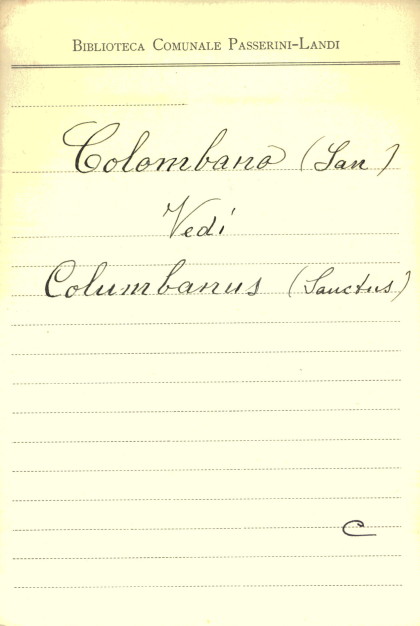 Biblioteca Comunale Passerini-Landi
Colombano (San)
Vedi
Columbanus (Sanctus)
C